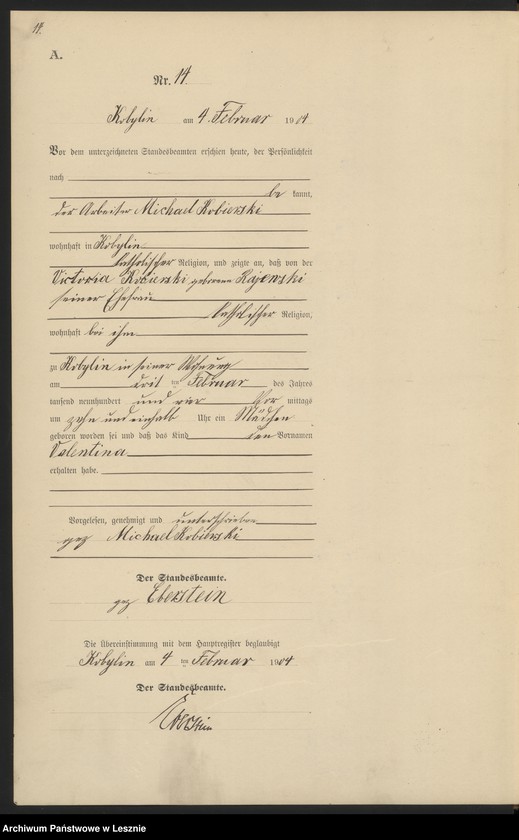 14.
A.
Nr. 14.
Kobylin am 4. Februar 1904
Vor dem unterzeichneten Standesbeamten erschien heute, der Persönlichkeit
nach
be kannt,
der Arbeiter Michael Kobierski
wohnhaft in Kobylin
katholischer Religion, und zeigte an, daß von der
Victoria Kobierski geborenen
seiner Ehefrau
katholischer Religion,
wohnhaft bei ihm
zu Kobylin in seiner Wohnung
am drit ten Februar des Jahres
tausend neunhundert und vier Vor mittags
um zehn und einhalb Uhr ein Mädchen
geboren worden sei und daß das Kind den Vornamen
Valentina
erhalten habe.
Vorgelesen, genehmigt und unterschrieben
gez Michael Kobierski
Der Standesbeamte.
gez Eberstein
Die Übereinstimmung mit dem Hauptregister beglaubigt
Kobylin am 4 ten Februar 1904
Der Standesbeamte.
Eberstein
Archiwum Państwowe w Lesznie